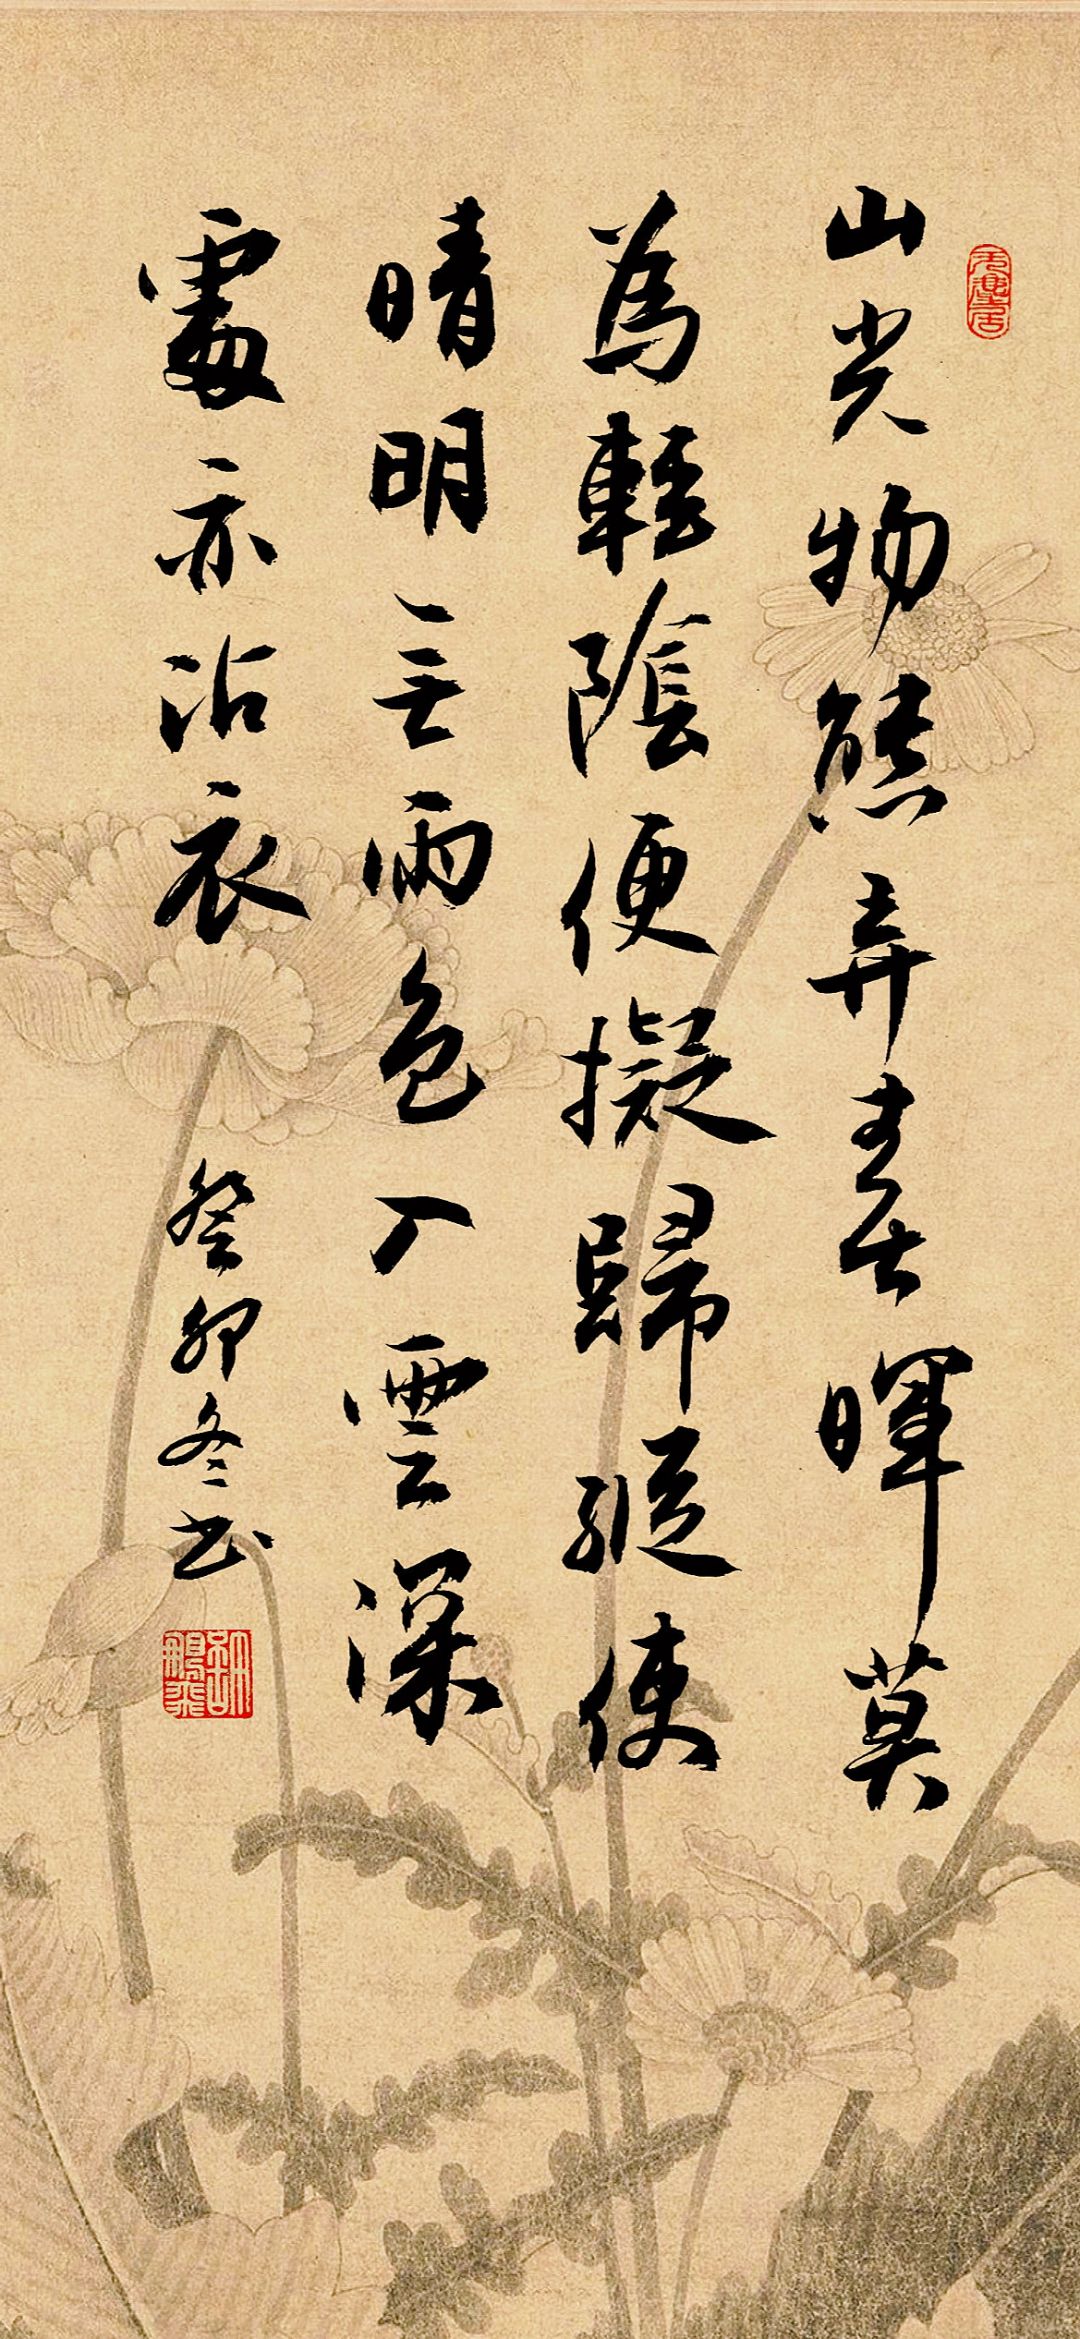 山光物態弄春暉莫
為輕陰便擬歸縱使
晴明无雨色入雲深
處亦沾衣
癸卯冬书